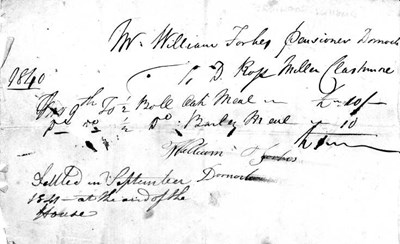 Mr. William Forbes Pensioner Dornoch
1840
To D. Ross Miller Clashmore
9th To ½ Boll Oat Meal 10/-
Do ½ Do Barley Meal 10
William Forbes
Settled in September Dornoch
1841 - at the end of the
House